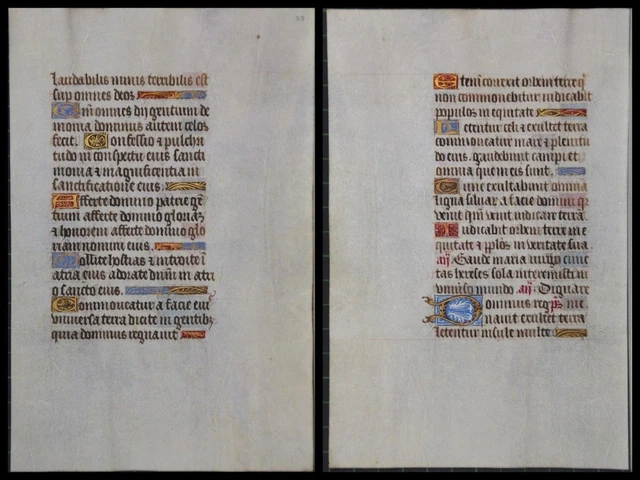 laudabilis nimis terribilis est
sup omnes deos
Qm omnes dij gentium de
monia dominus autem celos
fecit. Confessio & pulchri
tudo in conspectu eius sancti
monia & magnificentia in
sanctificatione eius.
Afferte domino patrie gē
tium afferte domino gloriā
& honorem afferte domino glo
riam nomini eius.
Tollite hostias & introite ī
atria eius adorate dnm in atri
o sancto eius.
Commoveatur a facie eius
universa terra dicite in gentib
quia dominus regnavit
Etenī correxit orbem terre q
non commovebitur iudicabit
populos in equitate
Letentur celi & exultet terra
commoveatur mare & plenitu
do eius. gaudebunt campi et
omnia que in eis sunt.
Tunc exultabunt omnia
ligna silvar a facie domini qr
venit qm venit iudicare terrā.
Iudicabit orbem terre in e
quitate & pplos in veritate sua.
an Gaude maria virgo cunc
tas hereses sola interemisti in
universo mundo. an Dignare
Dominus reg ps me
navit exultet terra
letentur insule multe